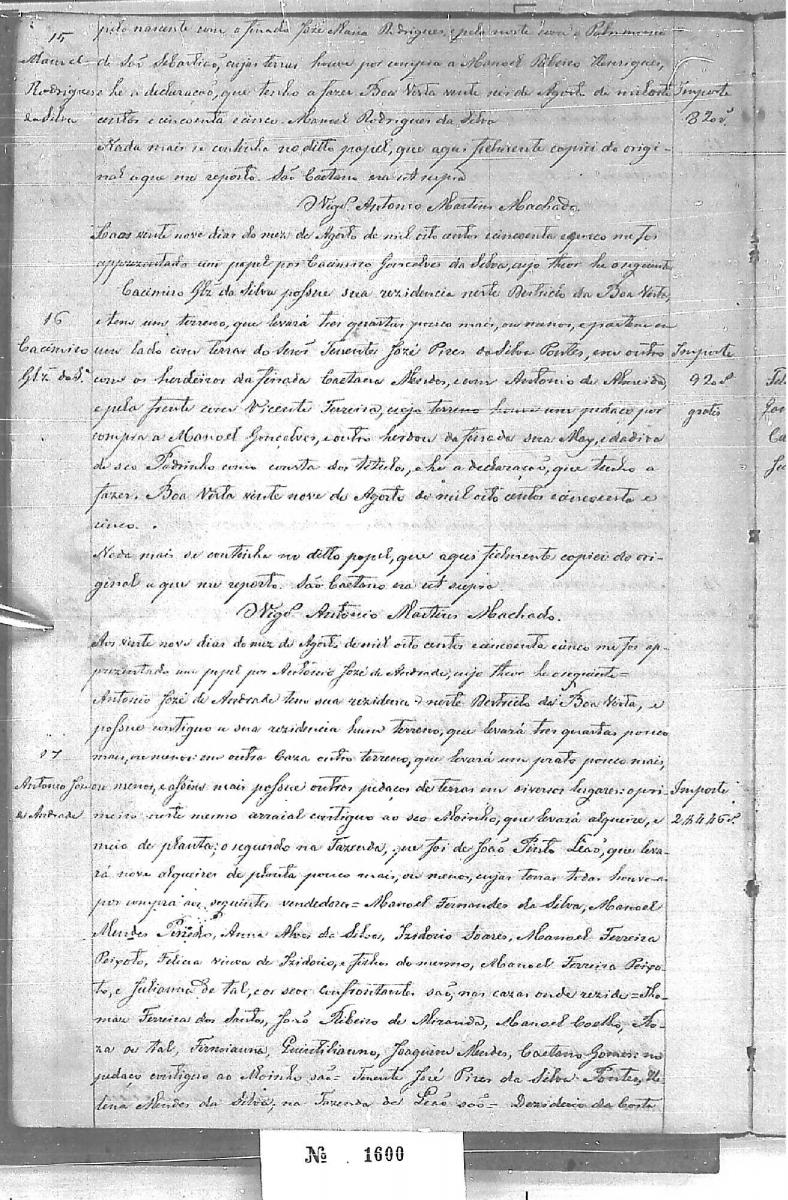 pelo nascente com o finado José Maria Rodrigues, e pelo norte com o Patrimonio
15
Manoel
Rodrigues
da Silva
de São Sebastião, cujas terras houve por compra a Manoel Ribeiro Henriques,
e he a declaração, que tenho a fazer. Boa Vista vente seis de Agosto de mil oito
centos e cincoenta e cinco. Manoel Rodrigues da Silva
Importe
820 r.s
Nada mais se continha no ditto papel, que aqui fielmente copiei do origi-
nal a que me reporto. São Caetano era ut supra
Vig.o Antonio Martins Machado.
Aos vente nove dias do mez de Agosto de mil oito centos e cincoenta e cinco me foi
appresentado um papel por Cacimiro Gonçalves da Silva, cujo theor he o seguinte
16
Cacimiro
Glz da S.a
Cacimiro Glz da Silva possue sua rezidencia neste Destricto da Boa Vista,
e tem um terreno, que levará tres quartas pouco mais, ou menos, e parte em
um lado com terras do Tenente José Pires da Silva Pontes, em outro
com os herdeiros da finada Caetana Mendes, e com Antonio de Almeida,
e pela frente com Vicente Ferreira, cujo terreno houve um pedaço por
compra a Manoel Gonçalves, e outro herdou da finada sua May, e dadiva
de seo Padrinho como consta dos titulos, e he a declaração, que tenho a
fazer. Boa Vista vinte nove de Agosto de mil oito centos e cincoenta e
cinco.
Importe
920 r.s
gratis
Nada mais se continha no ditto papel, que aqui fielmente copiei do ori-
ginal a que me reporto. São Caetano era ut supra
Vig.o Antonio Martins Machado.
Aos vinte nove dias do mez de Agosto de mil oito centos e cincoenta e cinco me foi ap-
presentado um papel por Antonio José de Andrade, cujo theor he o seguinte =
Antonio José de Andrade tem sua rezidencia neste Destricto da Boa Vista, e
possue contiguo a sua rezidencia hum terreno, que levará tres quartas pouco
mais, ou menos: em outra Caza outro terreno, que levará um prato pouco mais,
17
Antonio José
de Andrade
ou menos, e assim mais possue outros pedaços de terras em diversos lugares: o pri-
meiro neste mesmo arraial contiguo ao seo Moinho, que levará alqueire, e
meio de planta; o segundo na Fazenda, que foi de João Pinto Leão, que leva-
rá nove alqueires de planta pouco mais, ou menos, cujas terras todas houve
por compra aos seguintes vendedores = Manoel Fernandes da Silva, Manoel
Mendes Pinho, Anna Alves da Silva, Izidorio Soares, Manoel Ferreira
Peixoto, Felicia viuva de Izidoio, e filhos do mesmo, Manoel Ferreira Peixo-
to, e Julianna de tal, e os seos confrontantes são, nas cazas onde rezide = Tho-
maz Ferreira dos Santos, João Ribeiro de Miranda, Manoel Coelho,
de tal, Quintilianno, Joaquim Mendes, Caetano Gomes: no
pedaço contiguo ao Moinho são = Tenente José Pires da Silva Pontes, He-
lena Mendes da Silva; na Fazenda de Leão são = Deziderio da Costa
Importe
2$446 r.s
Nº 1600